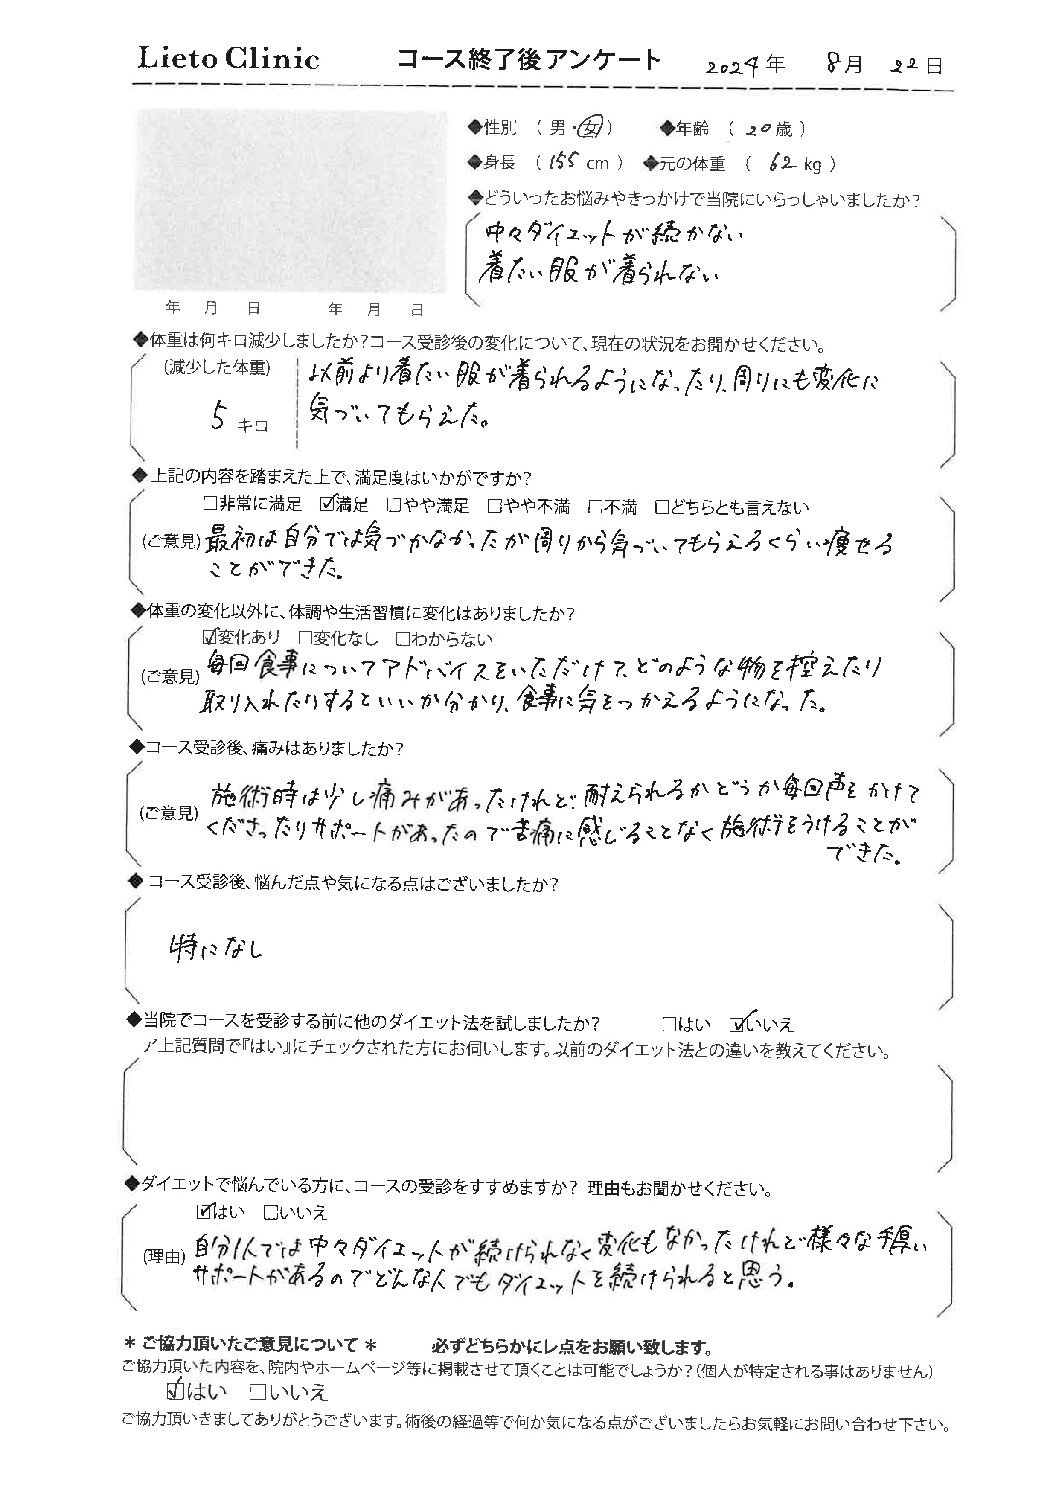 Lieto Clinic コース終了後アンケート 2024年 8月 22日
◆性別 （ 男・女 ） ◆年齢 （ 20歳 ）
◆身長 （ 155 cm ） ◆元の体重 （ 62 kg ）
◆どういったお悩みやきっかけで当院にいらっしゃいましたか?
中々ダイエットが続かない
着たい服が着られない
年 月 日 年 月 日
◆体重は何キロ減少しましたか?コース受診後の変化について、現在の状況をお聞かせください。
(減少した体重)
5 キロ
以前より着たい服が着られるようになったり、周りにも変化に
気づいてもらえた。
◆上記の内容を踏まえた上で、満足度はいかがですか?
□非常に満足 ☑満足 □やや満足 □やや不満 □不満 □どちらとも言えない
(ご意見) 最初は自分では気づかなかったが周りから気づいてもらえるくらい痩せる
ことができた。
◆体重の変化以外に、体調や生活習慣に変化はありましたか?
☑変化あり □変化なし □わからない
(ご意見) 毎回食事についてアドバイスをいただけて、どのような物を控えたり
取り入れたりするといいか分かり、食事に気をつかえるようになった。
◆コース受診後、痛みはありましたか?
(ご意見) 施術時は少し痛みがあったけれど、耐えられるかどうか毎回声をかけて
くださったりサポートがあったので苦痛に感じることなく施術をうけることが
できた。
◆コース受診後、悩んだ点や気になる点はございましたか?
特になし
◆当院でコースを受診する前に他のダイエット法を試しましたか? □はい ☑いいえ
ア上記質問で『はい』にチェックされた方にお伺いします。以前のダイエット法との違いを教えてください。
◆ダイエットで悩んでいる方に、コースの受診をすすめますか? 理由もお聞かせください。
☑はい □いいえ
(理由) 自分1人では中々ダイエットが続けられなく変化もなかったけれど様々な手厚い
サポートがあるのでどんな人でもダイエットを続けられると思う。
＊ご協力頂いたご意見について＊ 必ずどちらかにレ点をお願い致します。
ご協力頂いた内容を、院内やホームページ等に掲載させて頂くことは可能でしょうか?(個人が特定される事はありません)
☑はい □いいえ
ご協力頂きましてありがとうございます。術後の経過等で何か気になる点がございましたらお気軽にお問い合わせ下さい。